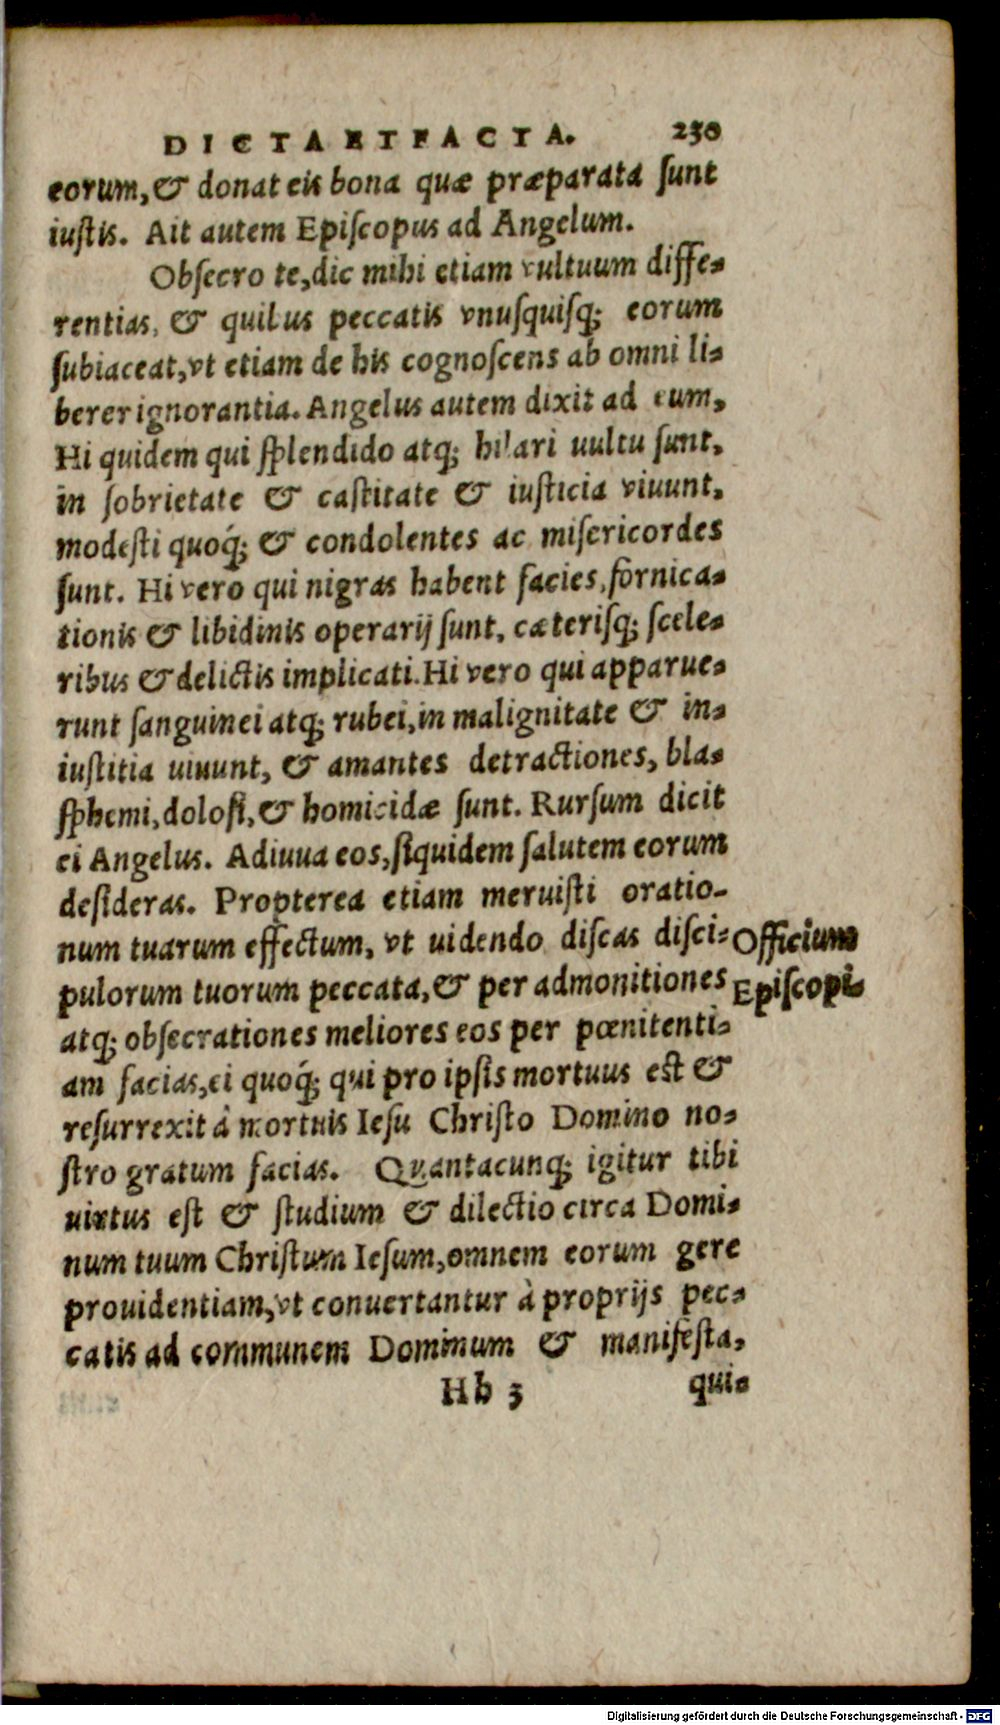 DICTA ET FACTA. 230
eorum, & donat eis bona quæ præparata ſunt
iuſtis. Ait autem Epiſcopus ad Angelum.
Obſecro te, dic mihi etiam vultuum diffe-
rentias, & quibus peccatis vnuſquiſq; eorum
ſubiaceat, vt etiam de his cognoſcens ab omni li-
berer ignorantia. Angelus autem dixit ad eum,
Hi quidem qui ſplendido atq; hilari uultu ſunt,
in ſobrietate & caſtitate & iuſticia viuunt,
modeſti quoq́; & condolentes ac miſericordes
ſunt. Hi vero qui nigras habent facies, fornica-
tionis & libidinis operarij ſunt, cæteriſq; ſcele-
ribus & delictis implicati. Hi vero qui apparue-
runt ſanguinei atq; rubei, in malignitate & in-
iuſtitia uiuunt, & amantes detractiones, bla-
ſphemi, doloſi, & homicidæ ſunt. Rurſum dicit
ei Angelus. Adiuua eos, ſiquidem ſalutem eorum
deſideras. Propterea etiam meruiſti oratio-
num tuarum effectum, vt uidendo diſcas diſci-
pulorum tuorum peccata, & per admonitiones
atq; obſecrationes meliores eos per pœnitenti-
am facias, ei quoq́; qui pro ipſis mortuus eſt &
reſurrexit à mortuis Ieſu Chriſto Domino no-
ſtro gratum facias. Quantacunq; igitur tibi
uirtus eſt & ſtudium & dilectio circa Domi-
num tuum Chriſtum Ieſum, omnem eorum gere
prouidentiam, vt conuertantur à proprijs pec-
catis ad communem Dominum & manifeſta,
Hh 3 qui-
Officium
Epiſcopi.
Digitalisierung gefördert durch die Deutsche Forschungsgemeinschaft - DFG